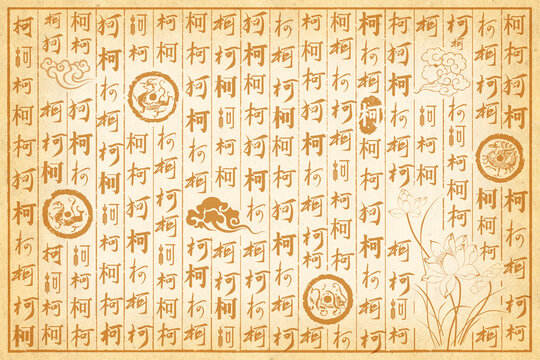 柯柯柯柯柯柯柯柯柯柯
柯柯柯柯柯柯柯柯
柯柯柯柯柯柯柯柯
柯柯柯柯柯
柯柯柯柯柯柯柯柯柯柯
柯柯柯柯柯柯柯柯柯柯柯柯
柯柯柯柯柯柯柯柯柯柯
柯柯柯柯柯柯柯柯柯柯
柯柯柯柯柯柯柯柯柯柯柯柯
柯柯柯柯柯柯柯柯柯柯柯柯
柯柯柯柯柯柯柯柯柯柯
柯柯柯柯柯柯柯柯柯柯
柯柯柯柯柯柯柯柯柯柯
柯柯柯柯柯柯柯柯柯柯
柯柯柯柯柯柯柯柯柯柯柯柯
柯柯柯柯柯柯柯柯柯
柯柯柯柯柯柯柯柯
柯柯柯柯柯柯柯柯柯柯柯柯